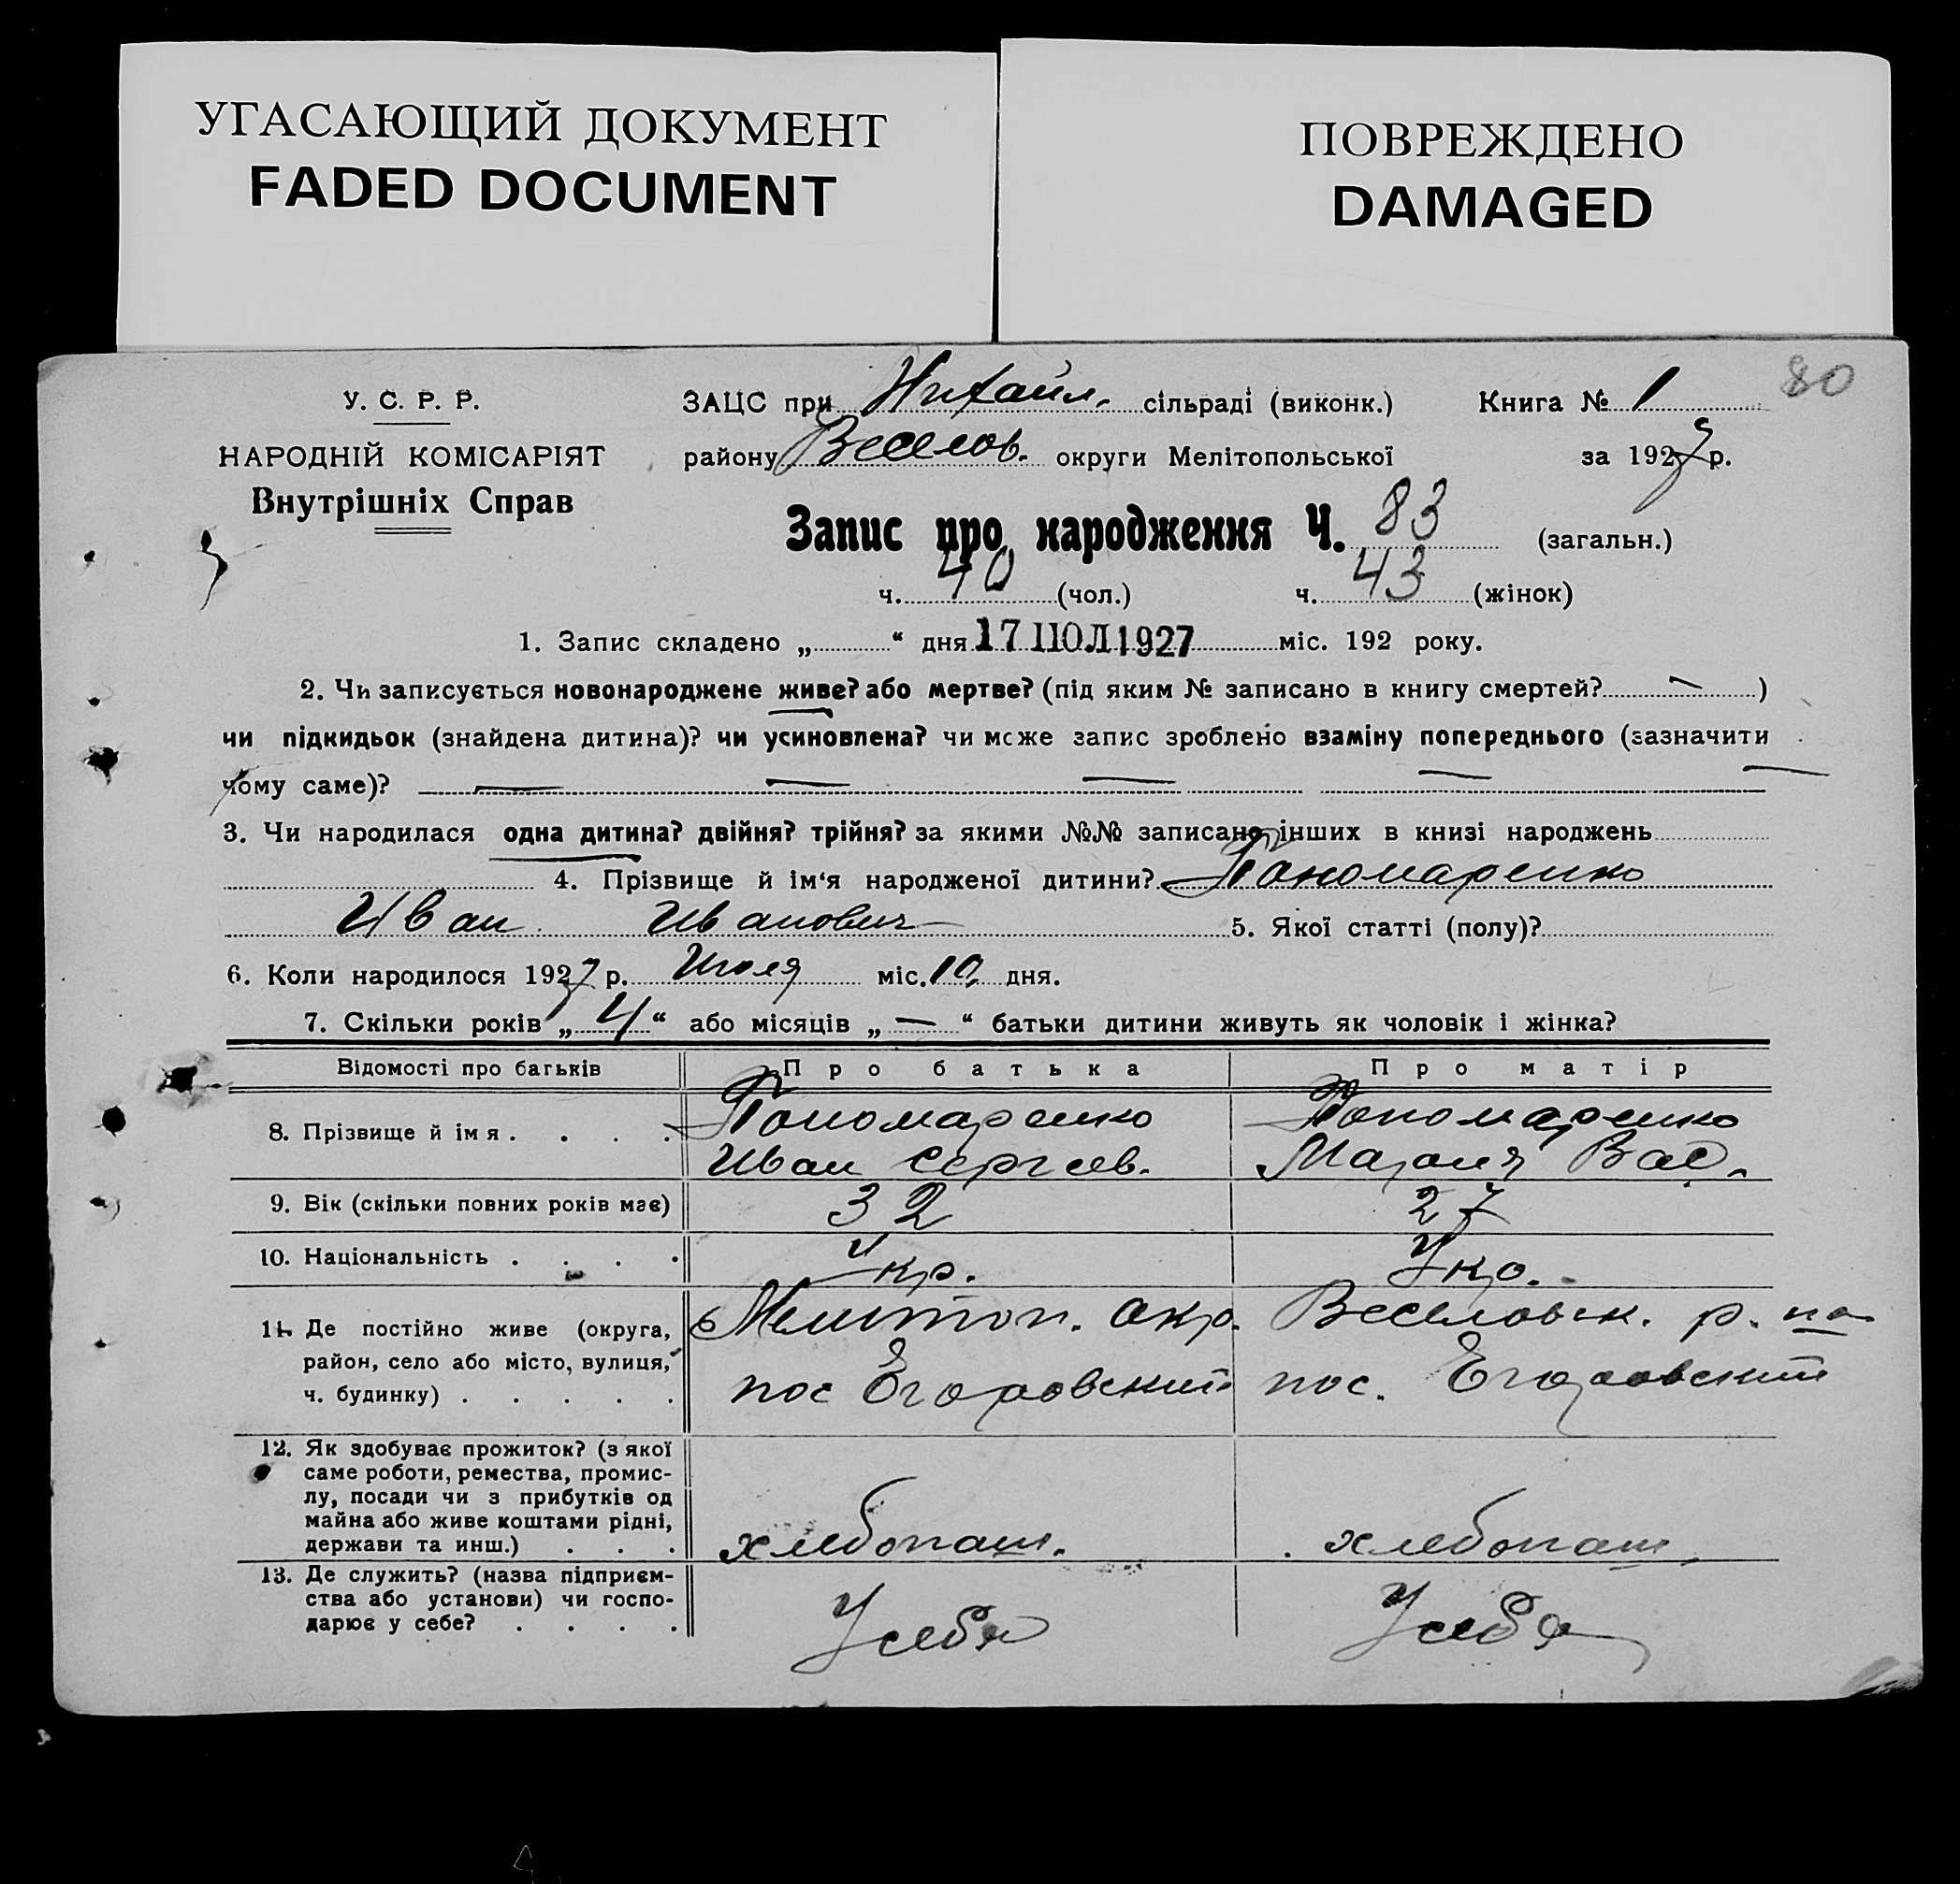 УГАСАЮЩИЙ ДОКУМЕНТ
FADED DOCUMENT
ПОВРЕЖДЕНО
DAMAGED
80
У. С. Р. Р.
НАРОДНІЙ КОМІСАРІЯТ
Внутрішніх Справ
ЗАЦС при Михайл. сільраді (виконк.) Книга № 1
району Веселов. округи Мелітопольської за 1927 р.
Запис про народження Ч. 83 (загальн.)
ч. 40 (чол.) ч. 43 (жінок)
1. Запис складено „ “ дня 17 ІЮЛ 1927 міс. 192 року.
2. Чи записується новонароджене живе? або мертве? (під яким № записано в книгу смертей? — )
чи підкидьок (знайдена дитина)? чи усиновлена? чи може запис зроблено взаміну попереднього (зазначити
чому саме)? — — — — —
3. Чи народилася одна дитина? двійня? трійня? за якими №№ записано інших в книзі народжень
4. Прізвище й ім‘я народженої дитини? Пономаренко
Иван Иванович 5. Якої статті (полу)?
6. Коли народилося 1927 р. Июля міс. 10 дня.
7. Скільки років „ 4 “ або місяців „ — “ батьки дитини живуть як чоловік і жінка?
Відомості про батьків Про батька Про матір
8. Прізвище й імя . . . . Пономаренко Пономаренко
Иван Сергеев. Маланя Вас.
9. Вік (скільки повних років має) 32 27
10. Національність . . . . Укр. Укр.
11. Де постійно живе (округа, Мелитоп. окр. Веселовск. р. на
район, село або місто, вулиця, пос Егоровский пос. Егоровский
ч. будинку) . . . . .
12. Як здобуває прожиток? (з якої
саме роботи, ремества, промис-
лу, посади чи з прибутків од
майна або живе коштами рідні,
держави та инш.) . . . хлебопаш. хлебопаш.
13. Де служить? (назва підприєм-
ства або установи) чи госпо-
дарює у себе? . . . . У себя У себя